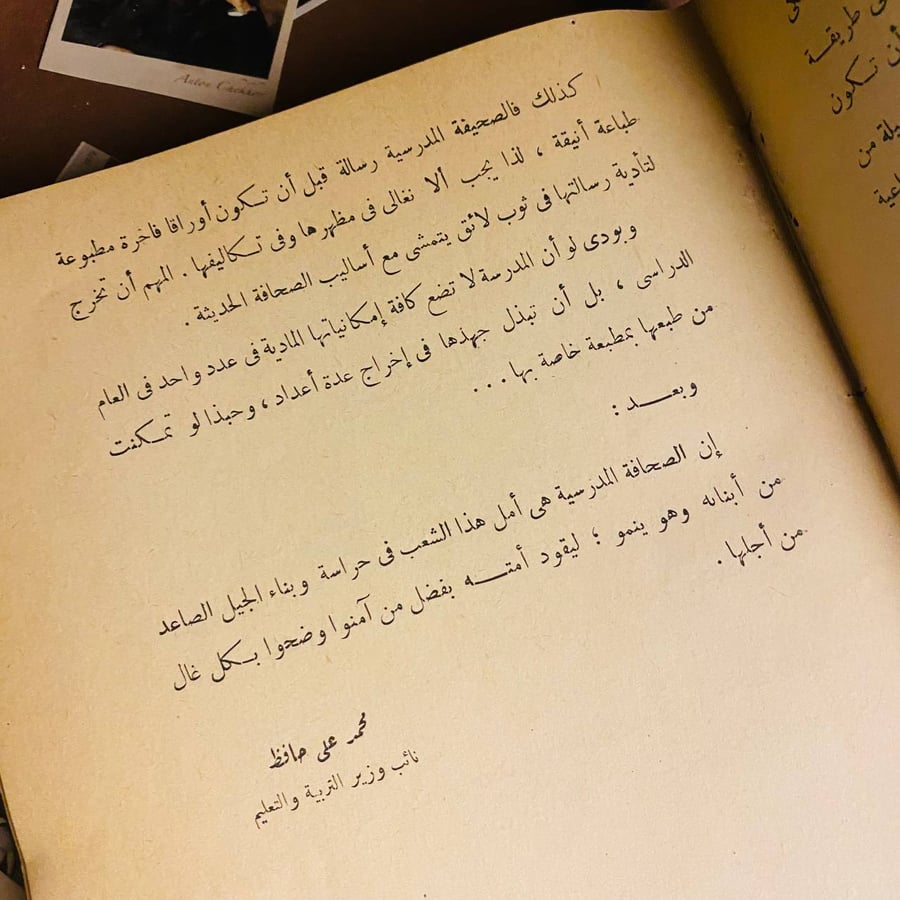 Anton Chekhov
كذلك فالصحيفة المدرسية رسالة قبل أن تكون أوراقا فاخرة مطبوعة
طباعة أنيقة ، لذا يجب ألا نغالى فى مظهرها وفى تكاليفها . المهم أن تخرج
لتأدية رسالتها فى ثوب لائق يتمشى مع أساليب الصحافة الحديثة .
وبودى لو أن المدرسة لا تضع كافة إمكانياتها المادية فى عدد واحد فى العام
الدراسى ، بل أن تبذل جهدها فى إخراج عدة أعداد ، وحبذا لو تمكنت
من طبعها بمطبعة خاصة بها ...
وبعــد :
إن الصحافة المدرسية هى أمل هذا الشعب فى حراسة وبناء الجيل الصاعد
من أبنائه وهو ينمو ؛ ليقود أمتــه بفضل من آمنوا وضحوا بكل غال
من أجلها .
محمد على حافظ
نائب وزير التربية والتعليم
طريقة
أن تكون
من